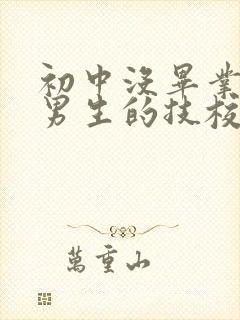 初中没畢業
男生的技校
萬重山